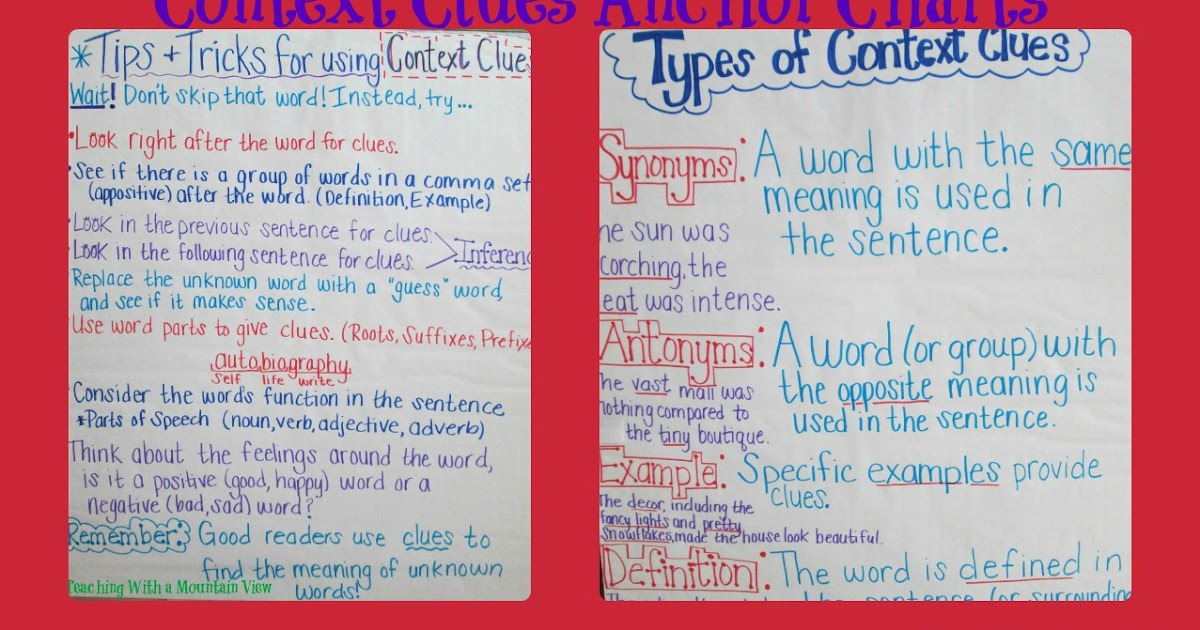 Context Clues Anchor Charts
*Tips + Tricks for using Context Clues
Wait! Don't skip that word! Instead, try...
•Look right after the word for clues.
•See if there is a group of words in a comma set
(appositive) after the word. (Definition, Example)
•Look in the previous sentence for clues.
•Look in the following sentence for clues.
Inferenc
Replace the unknown word with a "guess" word,
and see if it makes sense.
•Use word parts to give clues. (Roots, Suffixes, Prefixe
autobiography
self life write
Consider the word's function in the sentence
*Parts of Speech (noun, verb, adjective, adverb)
Think about the feelings around the word,
is it a positive (good, happy) word or a
negative (bad, sad) word?
Remember: Good readers use clues to
find the meaning of unknown
words!
Teaching With a Mountain View
Types of Context Clues
Synonyms: A word with the same
meaning is used in
the sentence.
he sun was
corching, the
eat was intense.
Antonyms: A word (or group) with
the opposite meaning is
used in the sentence.
The vast mall was
nothing compared to
the tiny boutique.
Example: Specific examples provide
clues.
The decor, including the
fancy lights and pretty
snowflakes, made the house look beautiful.
Definition: The word is defined in
the sentence (or surrounding